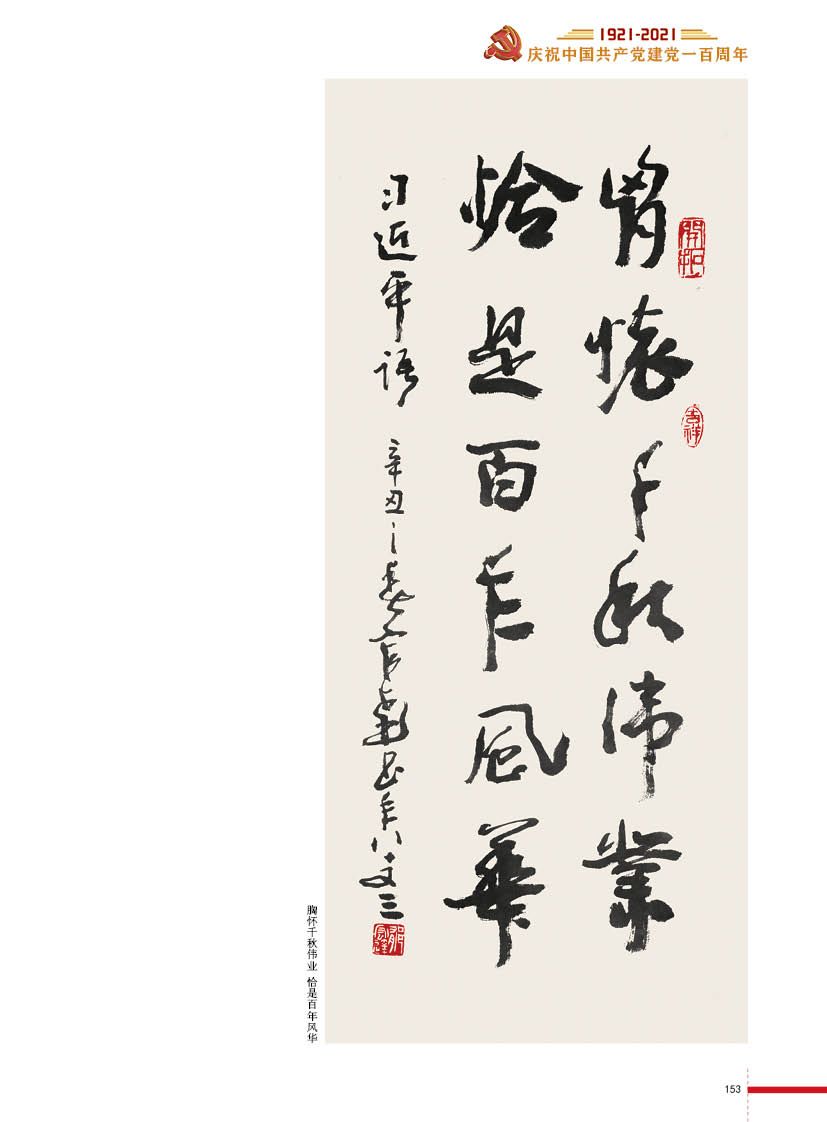 1921-2021
庆祝中国共产党建党一百周年
胷懷千秋偉業
恰是百年風華
习近平语
辛丑之春
年八十又三
開拓
吉祥
胸怀千秋伟业 恰是百年风华
153